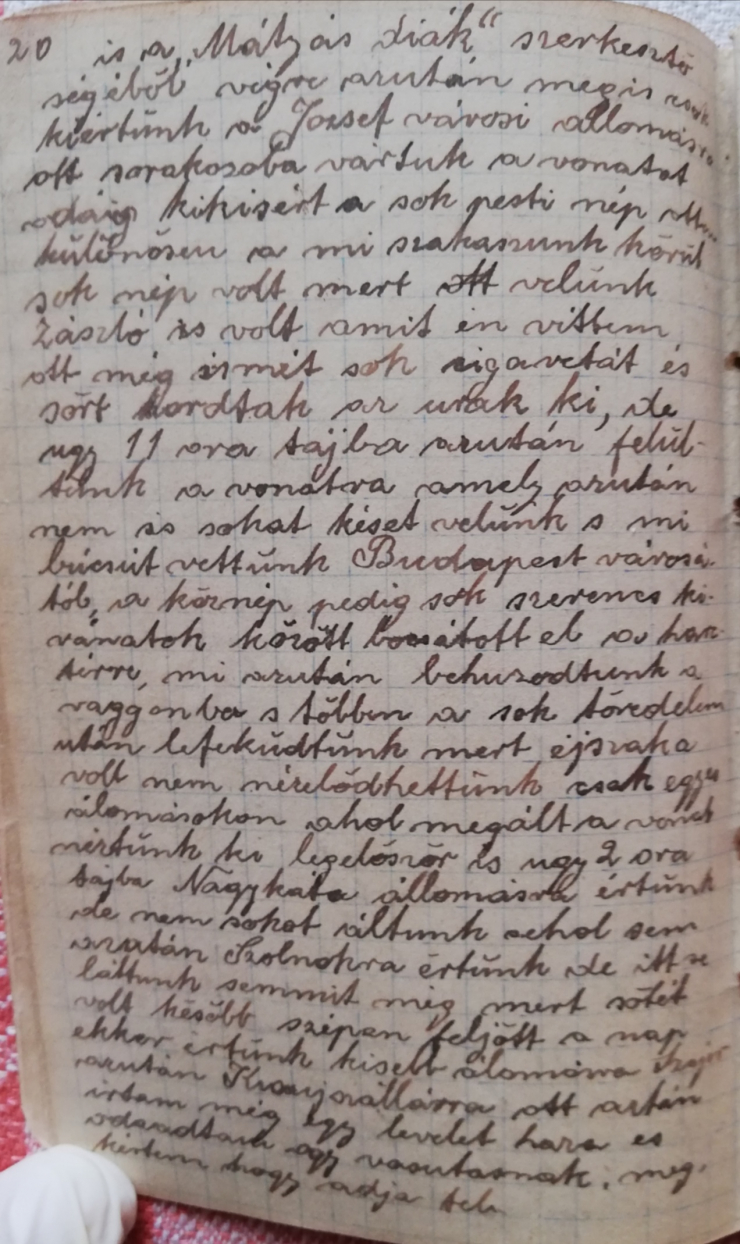 20 is a „Mátyás diák“ szerkesztő
ségéből végre azután megis csak
kiértünk a József városi állomásra
ott sorakozoba vártuk a vonatot
odáig kikisért a sok pesti nép
különösen a mi szakaszunk körül
sok nép volt mert ott velünk
Zászló is volt amit én vittem
ott még ismét sok sigaretát és
sört hordtak az urak ki, de
ugy 11 ora tájba azután felül-
tünk a vonatra amely azután
nem is sokat késet velünk s mi
búcsút vettünk Budapest városá-
tól, a köznép pedig sok szerencs ki-
vánatok között bocsátott el a harc-
térre, mi azután behuzodtunk a
vaggonba s többen a sok töredelem
után lefeküdtünk mert éjszaka
volt nem nézelődhettünk csak egyes
álomásokon ahol megált a vonat
néztünk ki legelőször is ugy 2 ora
tajba Nagykáta állomásra értünk
de nem sokat áltunk sehol sem
azután Szolnokra értünk de itt se
láttunk semmit még mert sötét
volt később szépen feljött a nap
ekkor értünk kisebb álomásra
azután Kisujszállásra ott aztán
irtam még egy levelet haza és
odaadtam egy vasutasnak, meg-
kértem hogy adja fel